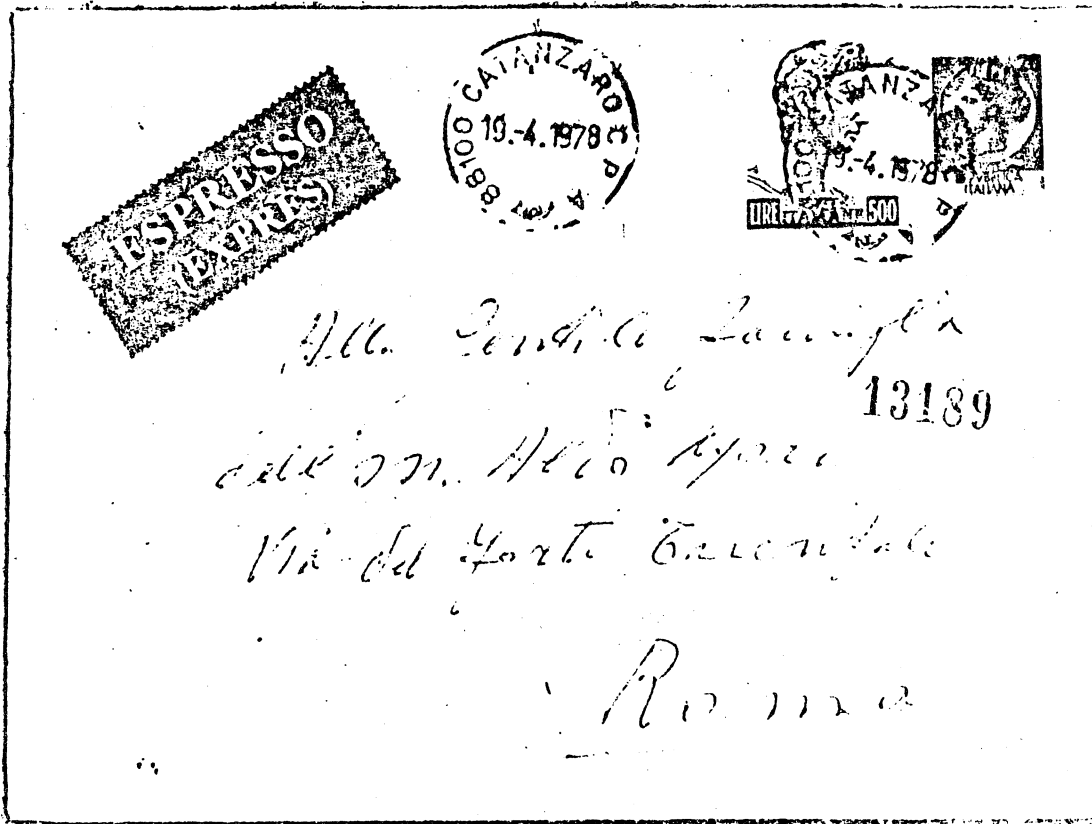 ESPRESSO
(EXPRES)
88100 CATANZARO C P
19.-4.1978
A
100 CATANZA
19.-4.1978
LIRE 500
ITALIANA
Alla Gentile Famiglia
13189
dell'on. Aldo Moro
Via del Forte Trionfale
Roma